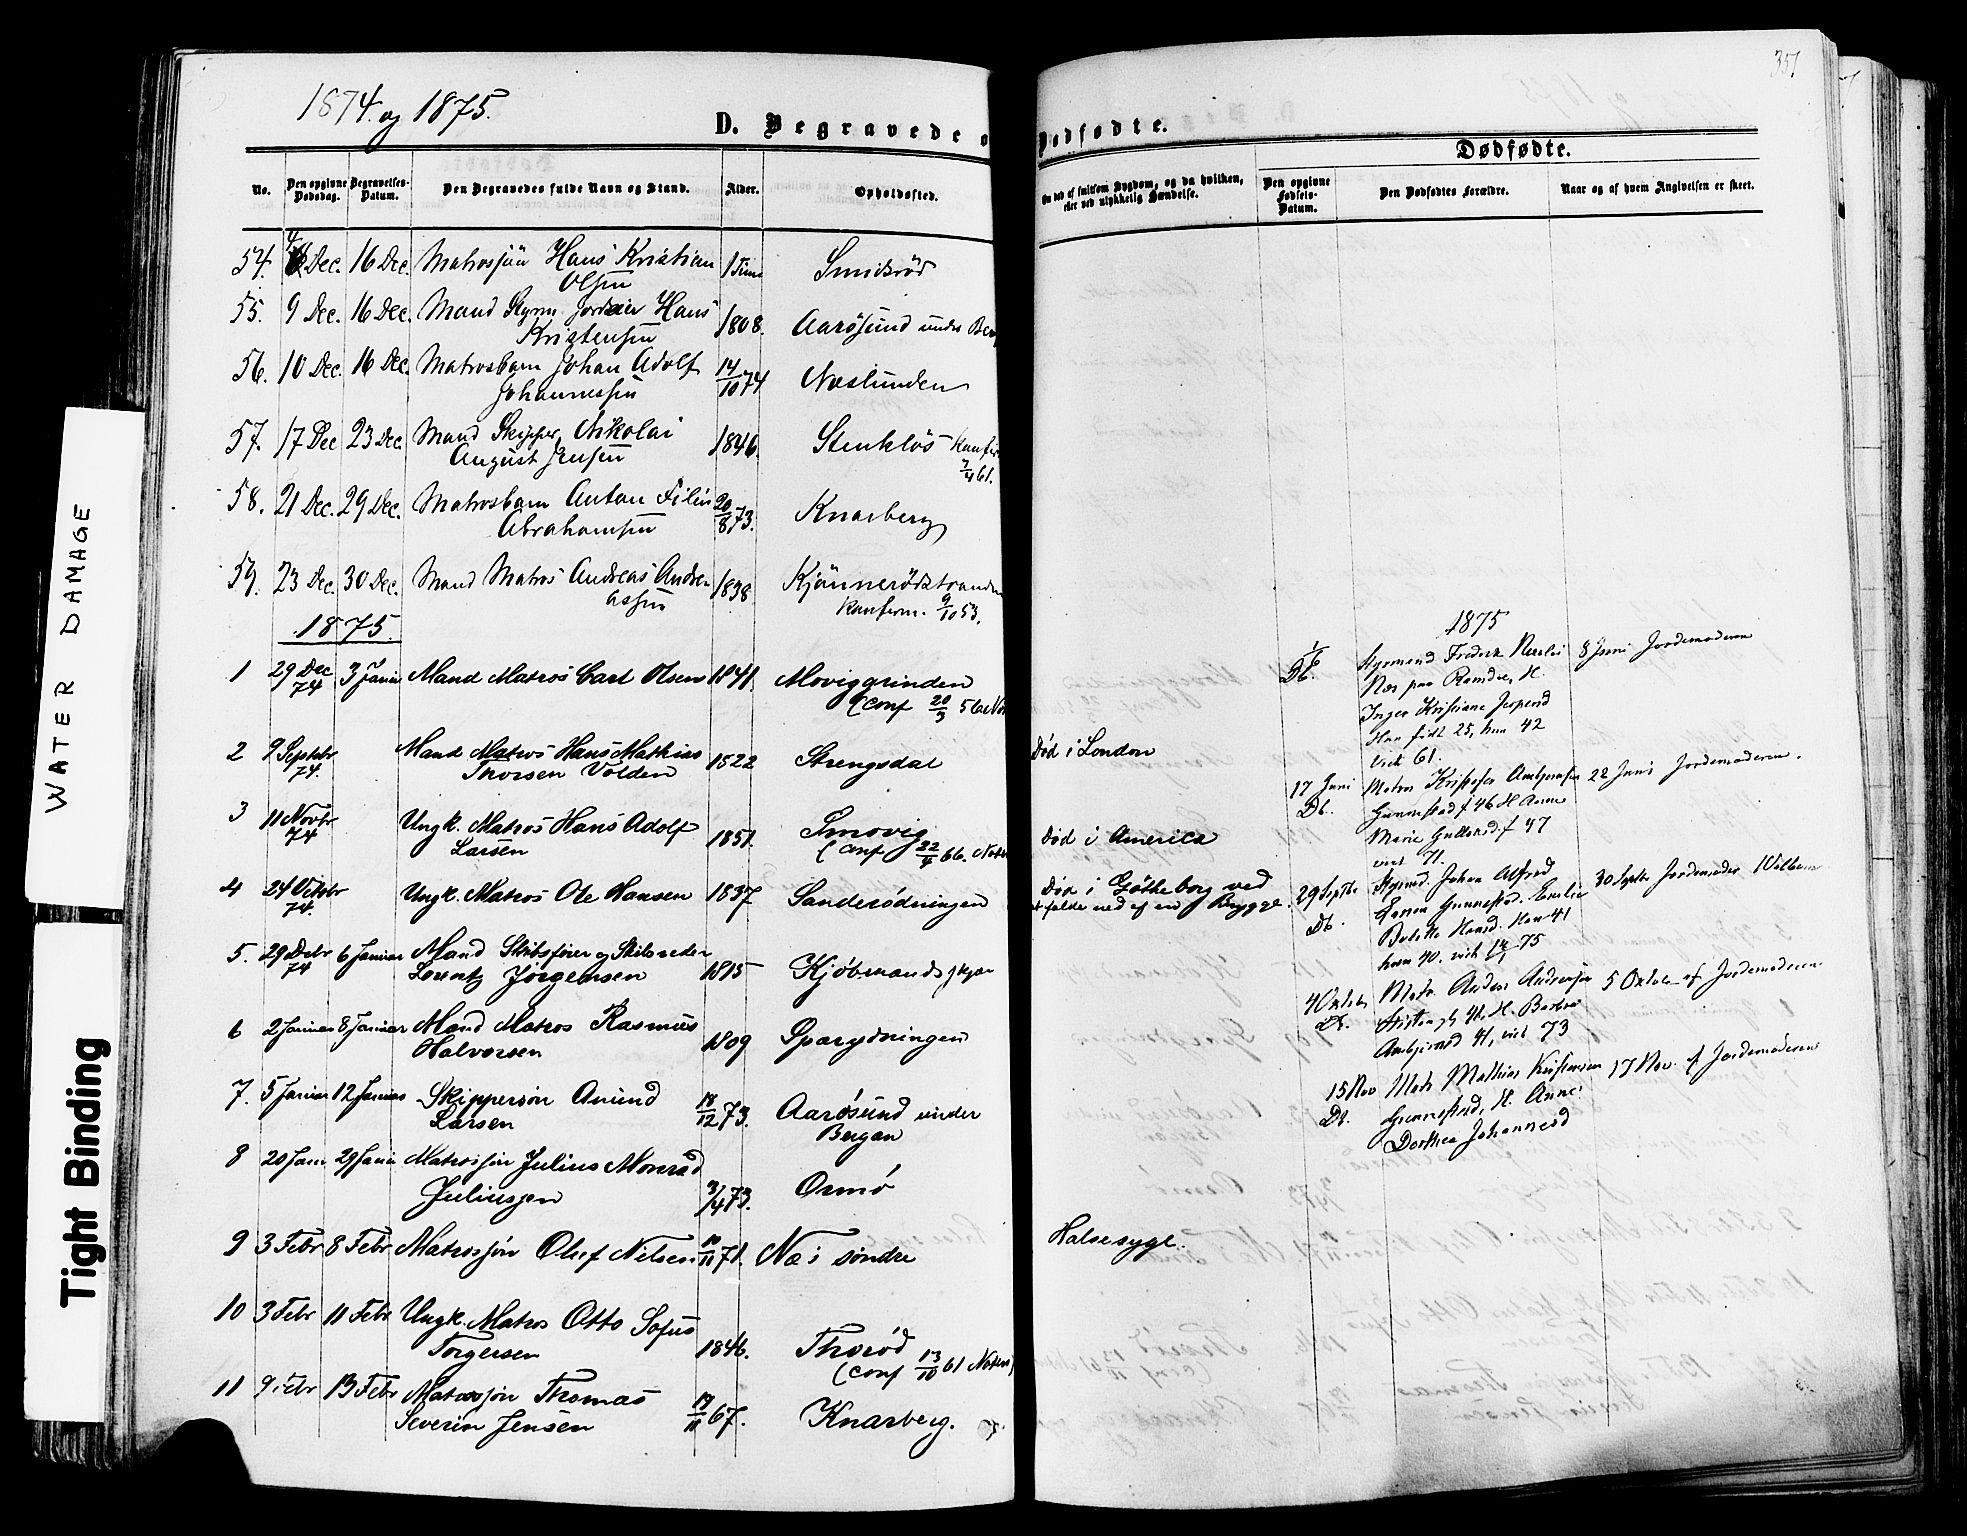 351
1874. og 1875.
D. Begravede o
Dødfødte.
No.
Den opgivne Dødsdag.
Begravelses-Datum.
Den Begravedes fulde Navn og Stand.
Alder.
Opholdssted.
Om død af smitsom Sygdom, og da hvilken,
eller ved ulykkelig Hændelse.
Dødfødte.
Den opgivne Fødsels-Datum.
Den Dødfødtes Forældre.
Naar og af hvem Angivelsen er skeet.
54. Dec. 16 Dec. Matrossøn Hans Kristian 1 Time Smidsrød
Olsen
55. 9 Dec. 16 Dec. Mand Styrm. Hans 1808. Aarøsund under
Kristensen
56. 10 Dec. 16 Dec. Matrosbarn Johan Adolf 14/10 74 Næslunden
Johannessen
57. 17 Dec 23 Dec. Mand Skipper Nikolai 1846. Stenkløs Konfir
August Jensen 7/4 61.
58. 21 Dec. 29 Dec. Matrosbarn Anton Filip 20/8 73. Knarberg
Abrahamsen
59. 23 Dec. 30 Dec. Mand Matros Andreas Andre 1838. Kjønnerødstranden
assen Konferm. 9/10 53.
1875.
1 29 Dec 74 3 Januar Mand Matros Carl Olsen 1841. Moviggrinden
(conf 20/3 56
2 9 Septebr 74. Mand Matros Hans Mathias 1822 Strengsdal Død i London
Thorsen Volden
3 11 Novbr 74 Ungk. Matros Hans Adolf 1851. Smovig Død i America
Larsen (conf 22/4 66.
4 24 Octobr 74. Ungk. Matros Ole Hansen 1837 Sanderødningen Død i Gøtheborg ved
at falde ned af en Brygge.
5. 29 Decbr 74 6 Januar Mand Skibsfører og Skibsreder 1815 Kjøbmandskjær
Lorentz Jørgensen
6 2 Januar 8 Januar Mand Matros Rasmus 1809 Sparydningen
Halvorsen
7. 5 Januar 12 Januar Skippersøn Anund 18/12 73. Aarøsund under
Larsen Bergan
8 20 Janu 29 Janu Matrossøn Julius Monrad 3/4 73. Ormø
Juliussen
9 3 Febr 8 Febr Matrossøn Oluf Nilsen 10/11 71. Næs søndre Halsesyge.
10 3 Febr 11 Febr Ungk. Matros Otto Sofus 1846. Thorød
Torgersen (conf 13/10 61 Noter
11 9 Febr 13 Febr Matrossøn Thomas 17/11 67. Knarberg.
Severin Jensen
1875
Db. Styrmand Fredrik 8 Juni Jordemoderen
Næs paa Ramdal, H.
Inger Kristiane Jespersd
Han født 25, hun 42
viet 61.
17 Juni Matros Kristofer 22 Juni Jordemoderen.
Db. Gunnestad f 46 H Anne
Marie Gulliksd. f 47
viet 71.
29 Septbr Styrmd. Johan Alfred 30 Septbr Jordemoder
Db. Gunnestad. Emilie
Hansd. Han 41
hun 40. viet 75
4 Oktob. Matr. Anders Andersen 5 Oktober af Jordemoderen
Db. H.
41, viet 73
15 Nov Matr Mathias Kristensen 17 Nov. af Jordemoderen
Db. Gunnestad, H. Anne
Dorthea Johannesd
WATER DAMAGE
Tight Binding